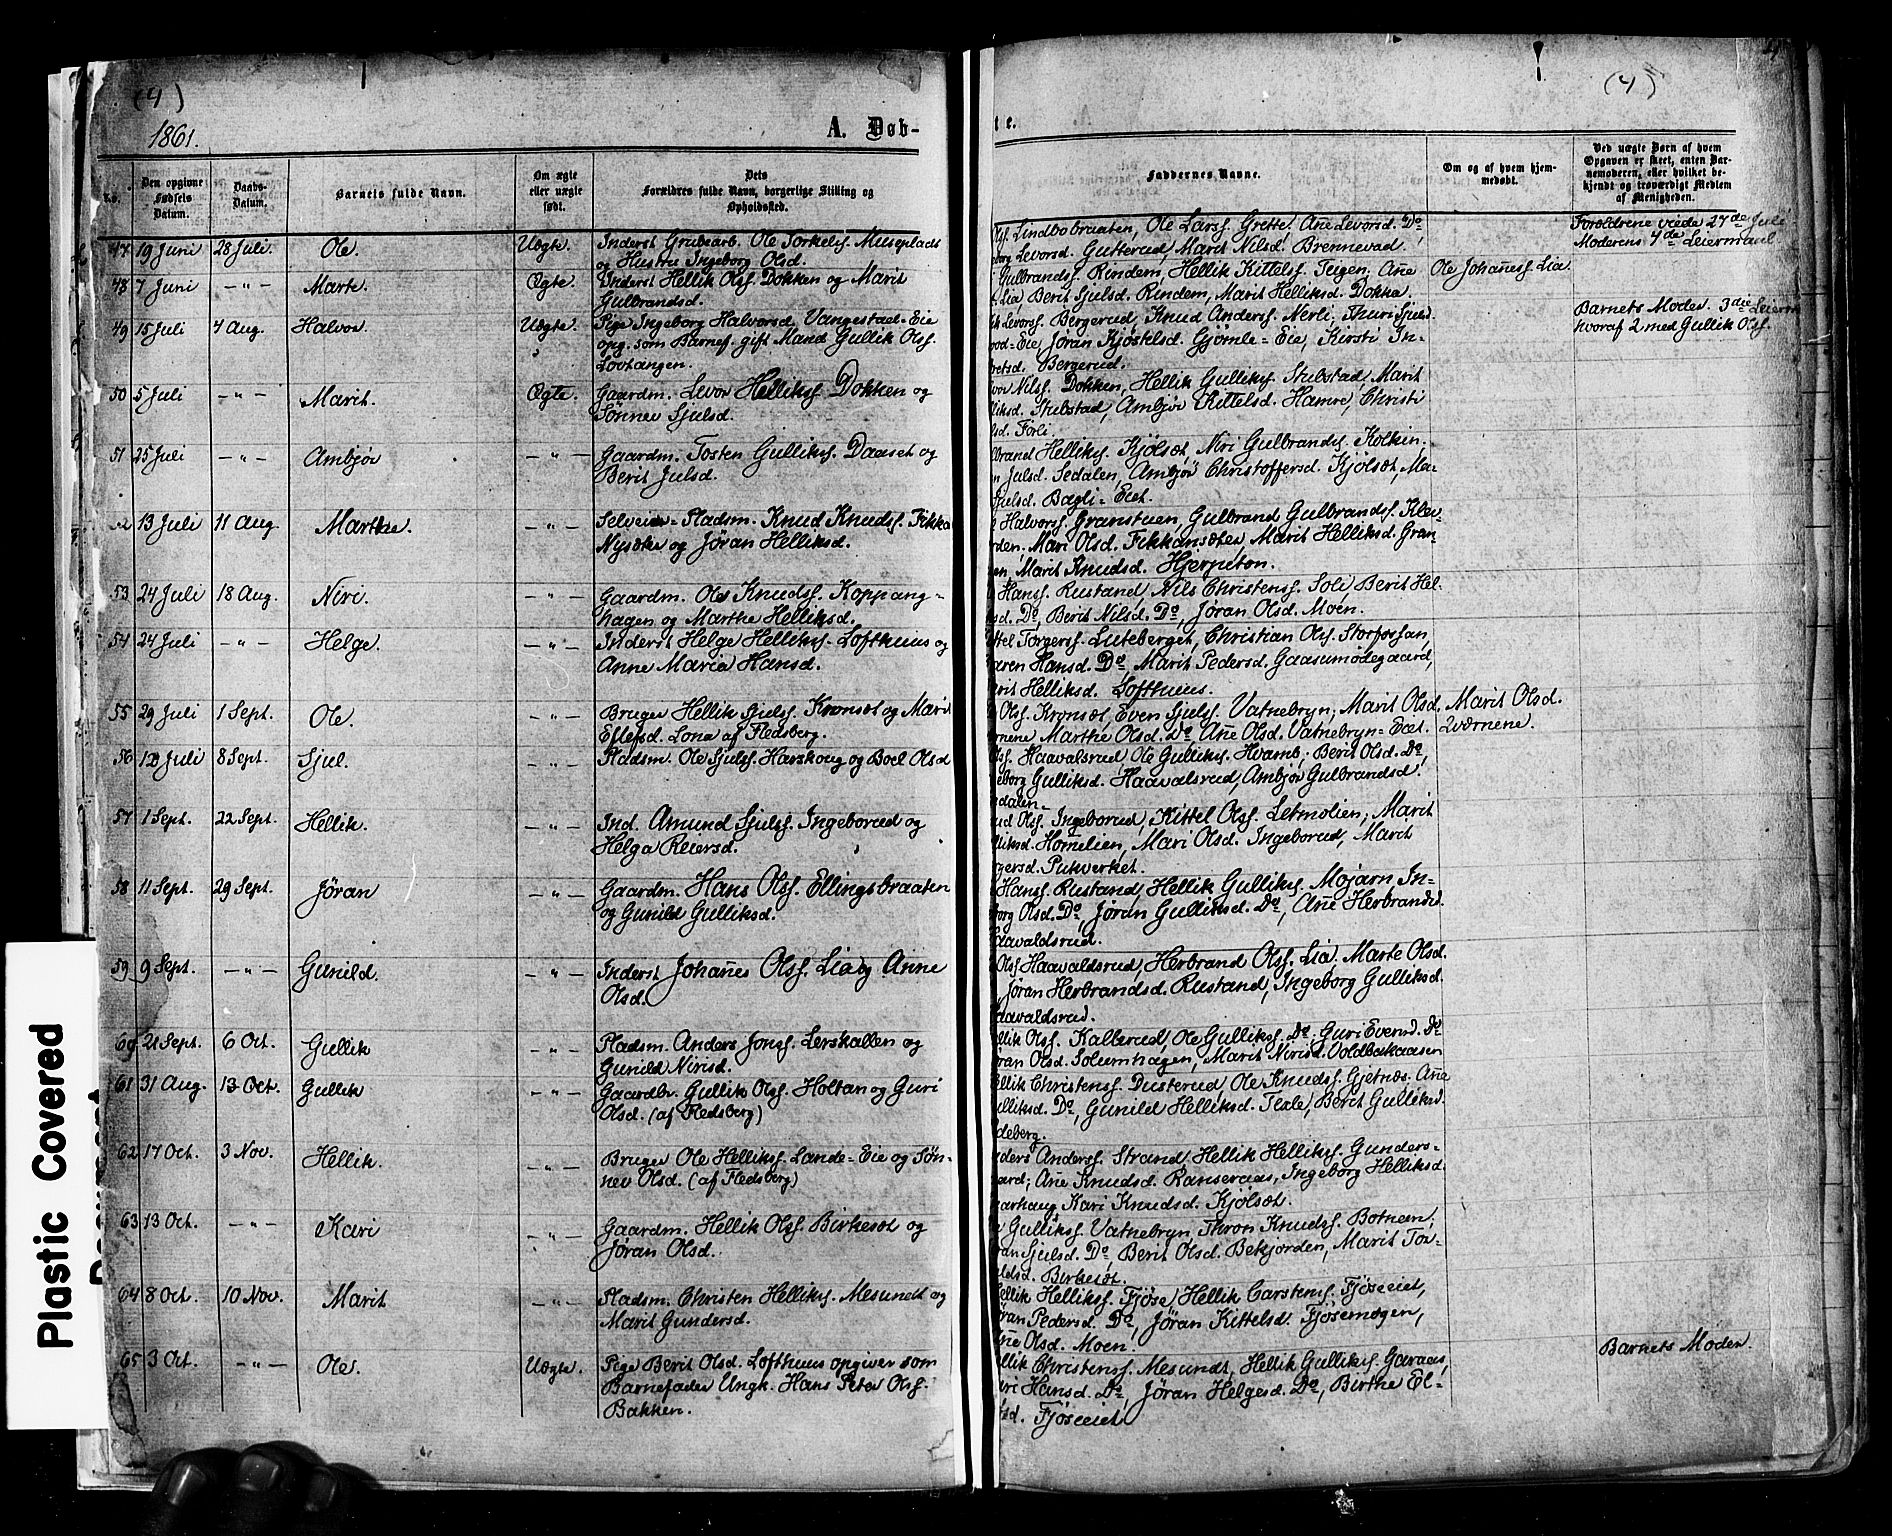 (4)
1861.
A. Døb-
No.
Den opgivne Fødsels Datum.
Daabs-Datum.
Barnets fulde Navn.
Om ægte eller uægte født.
Dets Forældres fulde Navn, borgerlige Stilling og Opholdssted.
47 19 Juni 28 Juli. Ole. Uægte. Inderst Grubearb. Ole Torkelsf. Musepladt
og Hustru Ingeborg Olsd.
48 7 Juni -"- Marte. Ægte. Inderst Hellik Olsf. Dokken og Marit
Gulbrandsd.
49 15 Juli 4 Aug. Halvor. Uægte. Pige Ingeborg Halvorsd. Vangestael-Eie
opg. som Barnef. gift Mand Gullik Olsf.
Lovtangen.
50 5 Juli -"- Marit. Ægte. Gaardm. Levor Helliksf. Dokken og
Sønnev Sjulsd.
51 25 Juli -"- Ambjør -"- Gaardm. Tosten Gulliksf. Daaset og
Berit Julsd.
52 13 Juli 11 Aug. Marthe. -"- Selveier-Pladsm. Knud Knudsf. Fikkan
Nysæter og Jøran Helliksd.
53 24 Juli 18 Aug. Niri. -"- Gaardm. Ole Knudsf. Koppang-
hagen og Marthe Helliksd.
54 24 Juli -"- Helge. -"- Inderst Helge Helliksf. Lofthuus og
Anne Maria Hansd.
55 29 Juli 1 Sept. Ole. -"- Bruger Hellik Sjulsf. Kronsæt og Marit
Ellefsd. Lona af Flesberg.
56 12 Juli 8 Sept. Sjul. -"- Pladsm. Ole Sjulsf. Harskoug og Boel Olsd
57 1 Sept. 22 Sept. Hellik. -"- Ind. Amund Sjulsf. Ingeborud og
Helga Reiersd.
58 11 Sept. 29 Sept. Jøran -"- Gaardm. Hans Olsf. Ellingsbraaten
og Gunild Gulliksd.
59 9 Sept. -"- Gunild. -"- Inderst Johañes Olsf. Lia og Anne
Olsd.
60 21 Sept. 6 Oct. Gullik -"- Pladsm. Anders Jonsf. Lerskallen og
Gunild Nirisd.
61 31 Aug. 13 Oct. Gullik -"- Gaardbr. Gullik Olsf. Holtan og Guri
Olsd. (af Flesberg)
62 17 Oct. 3 Nov. Hellik. -"- Bruger Ole Helliksf. Lande-Eie og Søn-
nev Olsd. (af Flesberg)
63 13 Oct. -"- Kari -"- Gaardm. Hellik Olsf. Birkesæt og
Jøran Olsd.
64 8 Oct. 10 Nov. Marit -"- Pladsm. Christen Helliksf. Mesundt og
Marit Gundersd.
65 3 Oct. -"- Ole. Uægte. Pige Berit Olsd. Lofthuus opgiver som
Barnefader Ungk. Hans Peter Olsf.
Bakken.
Plastic Covered
(4)
te.
Faddernes Navne.
Om og af hvem hjemmedøbt.
Ved uægte Børn af hvem
Opgaven er skeet, enten Bar-
nemoderen, eller hvilket be-
kjendt og troværdigt Medlem
af Menigheden.
Olsf. Lindbobraaten, Ole Larsf. Grette. Añe Levorsd. Do, Forældrene viede 27de Juli
borg Levorsd. Gutterud, Marit Nilsd. Brennevad. Moderens 4de Leiermaal.
Gulbrandsf. Rindem, Hellik Kittelsf. Teigen, Añe Ole Johañesf. Lia.
Lia Berit Sjulsd. Rindem, Marit Helliksd. Dokka.
Levorsf. Bergerud, Knud Andersf. Nerli. Thuri Sjulsd Barnets Moder. 3die Leierm
-Eie, Jøran Kjøstelsd. Gjømle-Eie, Kirsti In- hvoraf 2 med Gullik Olsf.
Bergerud.
Nilsf. Dokken, Hellik Gulliksf. Stubstad, Marit
liksd. Stubstad, Ambjør Kittelsd. Hamre, Christi
Forli
lbrand Helliksf. Kjølsæt, Niri Gulbrandsf. Kolkin.
Julsd. Sedalen, Ambjør Christoffersd. Kjølsæt, Ma-
Sjulsd. Bagli-Eiet.
Halvorsf. Granstuen, Gulbrand Gulbrandsf. Klev-
rden, Mari Olsd. Fikkansæter, Marit Helliksd. Gran-
en, Marit Knudsd. Hjerpeton.
Hansf. Rustand, Nils Christensf. Soli, Berit Hel-
sd. Do, Berit Nilsd. Do, Jøran Olsd. Moen.
ttel Torgersf. Luteberget, Christian Olsf. Storfossan,
aren Hansd. Do Marit Pedersd. Gaasumødegaard,
rit Helliksd. Lofthuus.
Olsf. Kronsæt, Even Sjulsf. Vatnebryn, Marit Olsd. Marit Olsd.
ernene Marthe Olsd. Do Añe Olsd. Vatnebryn-Eiet. Qværnene.
Olsf. Haavalsrud, Ole Gulliksf. Hvamb, Berit Olsd. Do,
eborg Gulliksd. Haavalsrud, Ambjør Gulbrandsd.
dalen.
ud Olsf. Ingeborud, Kittel Olsf. Letmolien, Marit
lliksd. Homelien, Mari Olsd. Ingeborud, Marit
gersd. Pukverket.
Hansf. Rustand, Hellik Gulliksf. Mojarn In-
borg Olsd. Do, Jøran Gulliksd. Do, Añe Herbrandsd.
aavaldsrud.
Olsf. Haavaldsrud, Herbrand Olsf. Lia. Marte Olsd.
Jøran Herbrandsd. Rustand, Ingeborg Gulliksd.
aavaldsrud.
ellik Olsf. Kallerud, Ole Gulliksf. Do, Guri Evensd. Do
øran Olsd. Solumhagen, Marit Nirisd. Voldbækaasen
ellik Christensf. Dusterud, Ole Knudsf. Gjetnæs. Añe
ulliksd. Do, Gunild Helliksd. Texle, Berit Gulliksd.
deberg.
nders Andersf. Strand, Hellik Helliksf. Gunders-
aard, Añe Knudsd. Ranseraas, Ingeborg Helliksd.
aarhaug Kari Knudsd. Kjølsæt.
Gulliksf. Vatnebryn, Thron Knudsf. Botnen,
ran Sjulsd. Do, Berit Olsd. Bekjorden, Marit Tor-
ldsd. Birkesæt.
ellik Helliksf. Fjøse, Hellik Carstensf. Fjøseeiet,
øran Pedersd. Do, Jøran Kittelsd. Fjøsemogen,
Añe Olsd. Moen.
ellik Christensf. Mesundt, Hellik Gulliksf. Garaas, Barnets Moder.
uri Hansd. Do, Jøran Helgesd. Do, Birthe El-
sd. Fjøseeiet